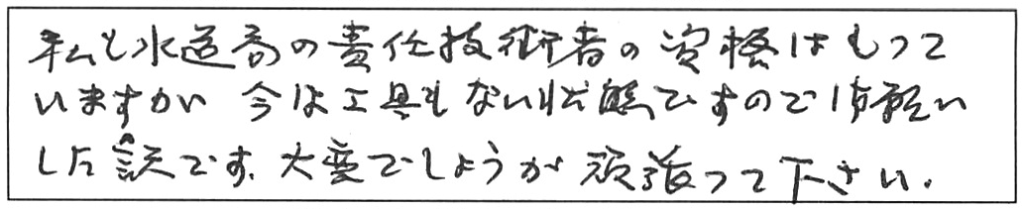 私も水道局の責任技術者の資格はもって
いますがい 今は工具もない状態ですので依頼い
した訳です。大変でしょうが頑張って下さい。